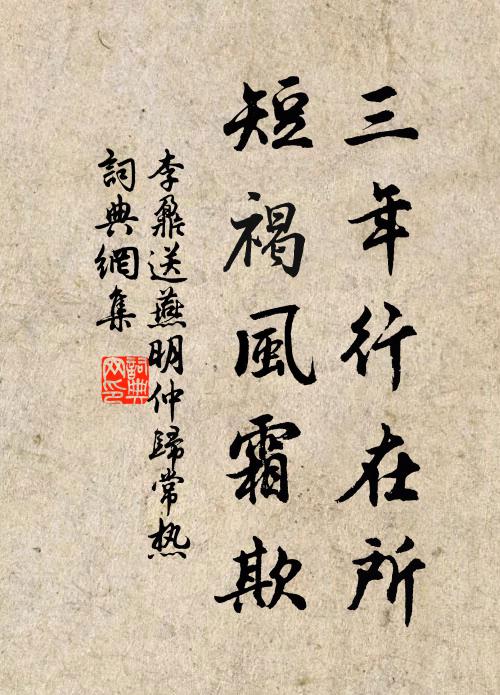 三年行在所
短褐風霜欺
李鼐送燕明仲歸常熱
詞典網集
詞典
网印